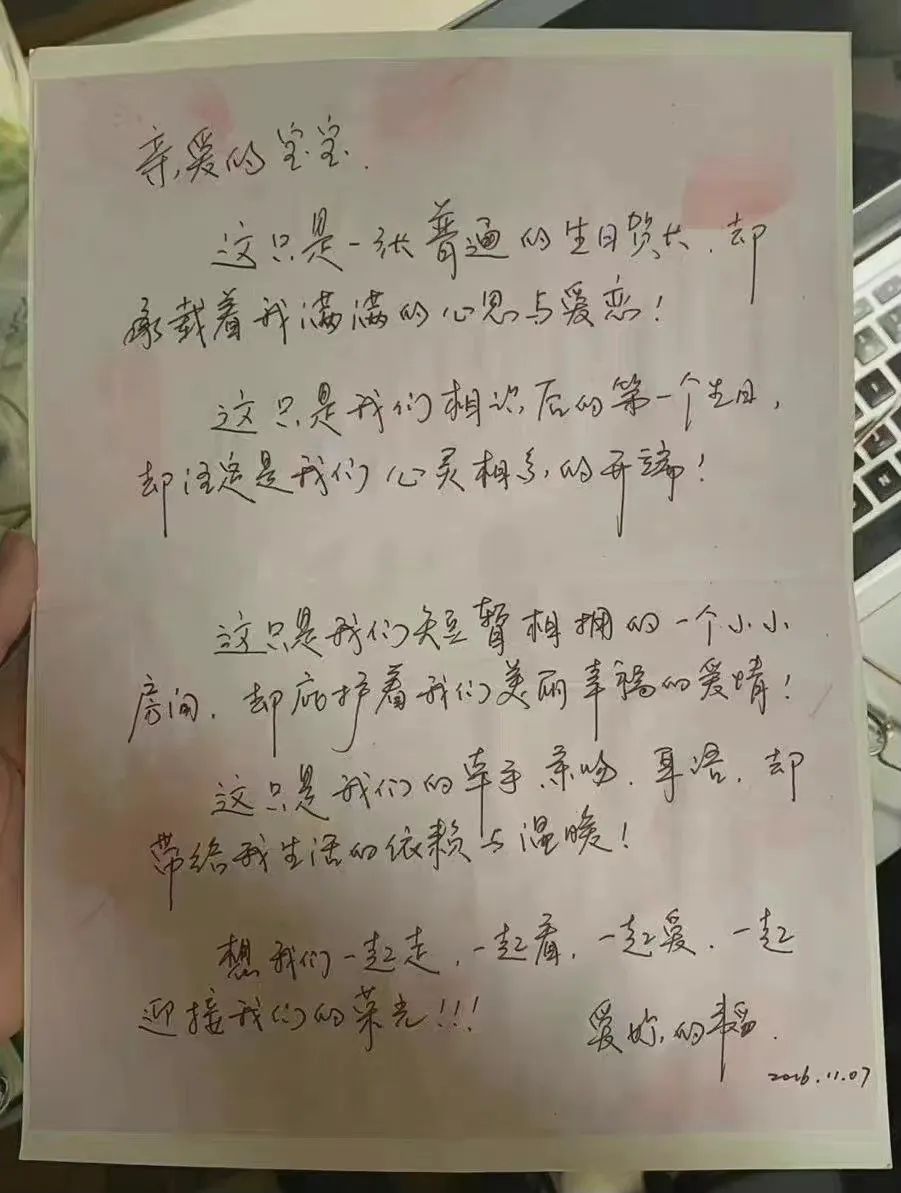 亲爱的宝宝.
这只是一张普通的生日贺卡,却
承载着我满满的心思与爱恋!
这只是我们相识后的第一个生日,
却注定是我们心灵相系的开端!
这只是我们短暂相拥的一个小小
房间,却庇护着我们美丽幸福的爱情!
这只是我们的牵手,亲吻,耳语,却
带给我生活的依赖与温暖!
想我们一起走,一起看,一起爱,一起
迎接我们的荣光!!!
爱妳的
2016.11.07